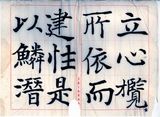 立心攬
所依而
建性是
以鱗潛